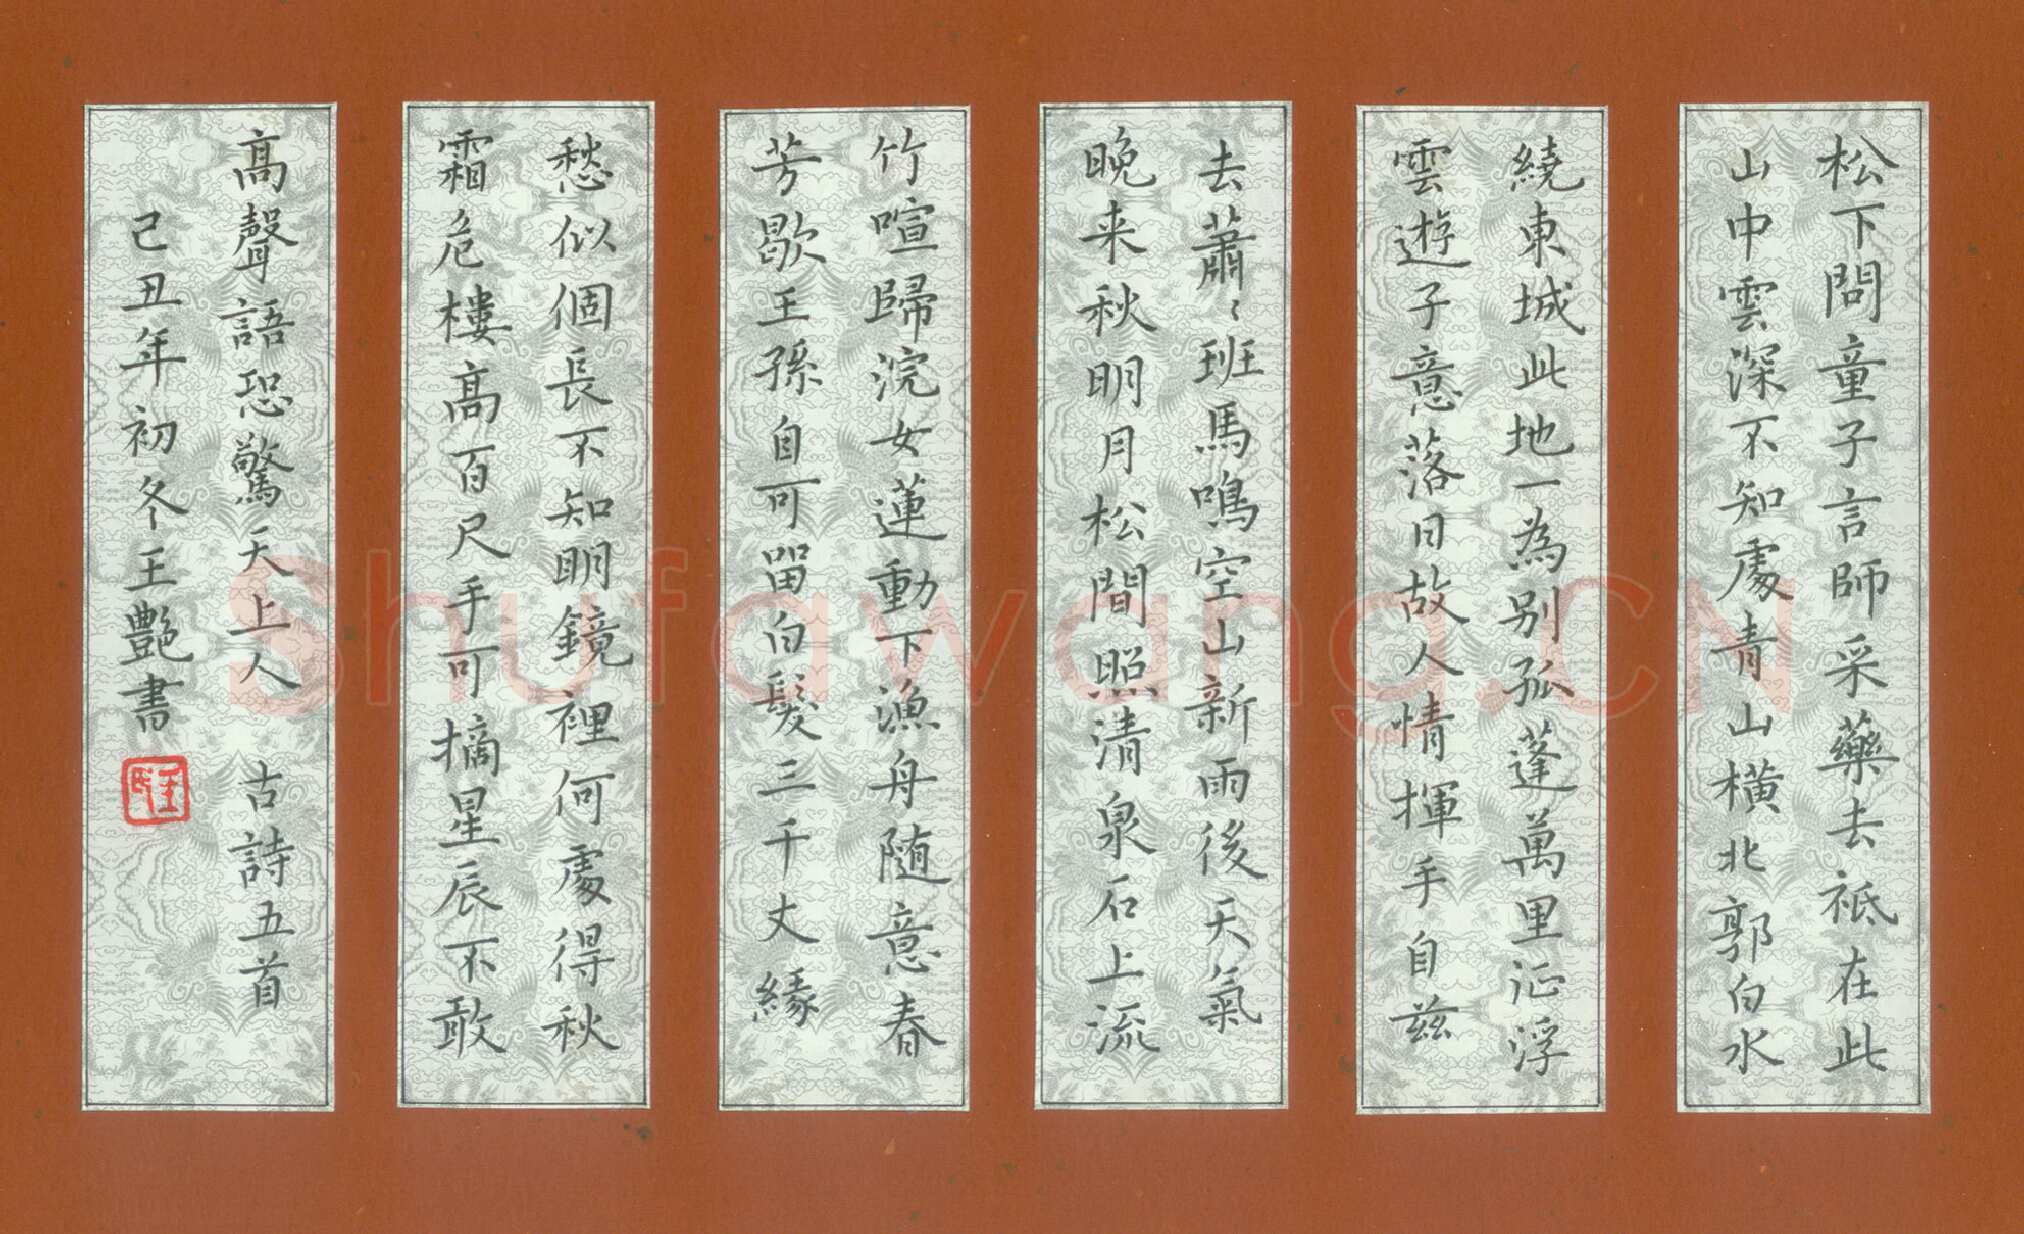 松下問童子言師采藥去祗在此
山中雲深不知處青山橫北郭白水
繞東城此地一為别孤蓬萬里征浮
雲遊子意落日故人情揮手自茲
去蕭〻班馬鳴空山新雨後天氣
晚来秋明月松間照清泉石上流
竹喧歸浣女蓮動下漁舟随意春
芳歇王孫自可留白髮三千丈緣
愁似個長不知明鏡裡何處得秋
霜危樓髙百尺手可摘星辰不敢
髙聲語恐驚天上人 古詩五首
己丑年初冬王艷書
Shufawang.CN